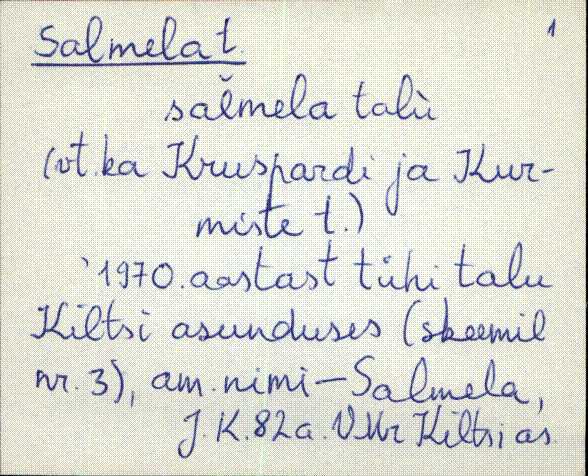 Salmela t. 1
sal̆mela talù
(vt. ka Kruspardi ja Kur-
miste t.)
`1970. aastast tühi talu
Kiltsi asunduses (skeemil
nr. 3), am. nimi – Salmela,
J. K. 82 a. VMr Kiltsi as